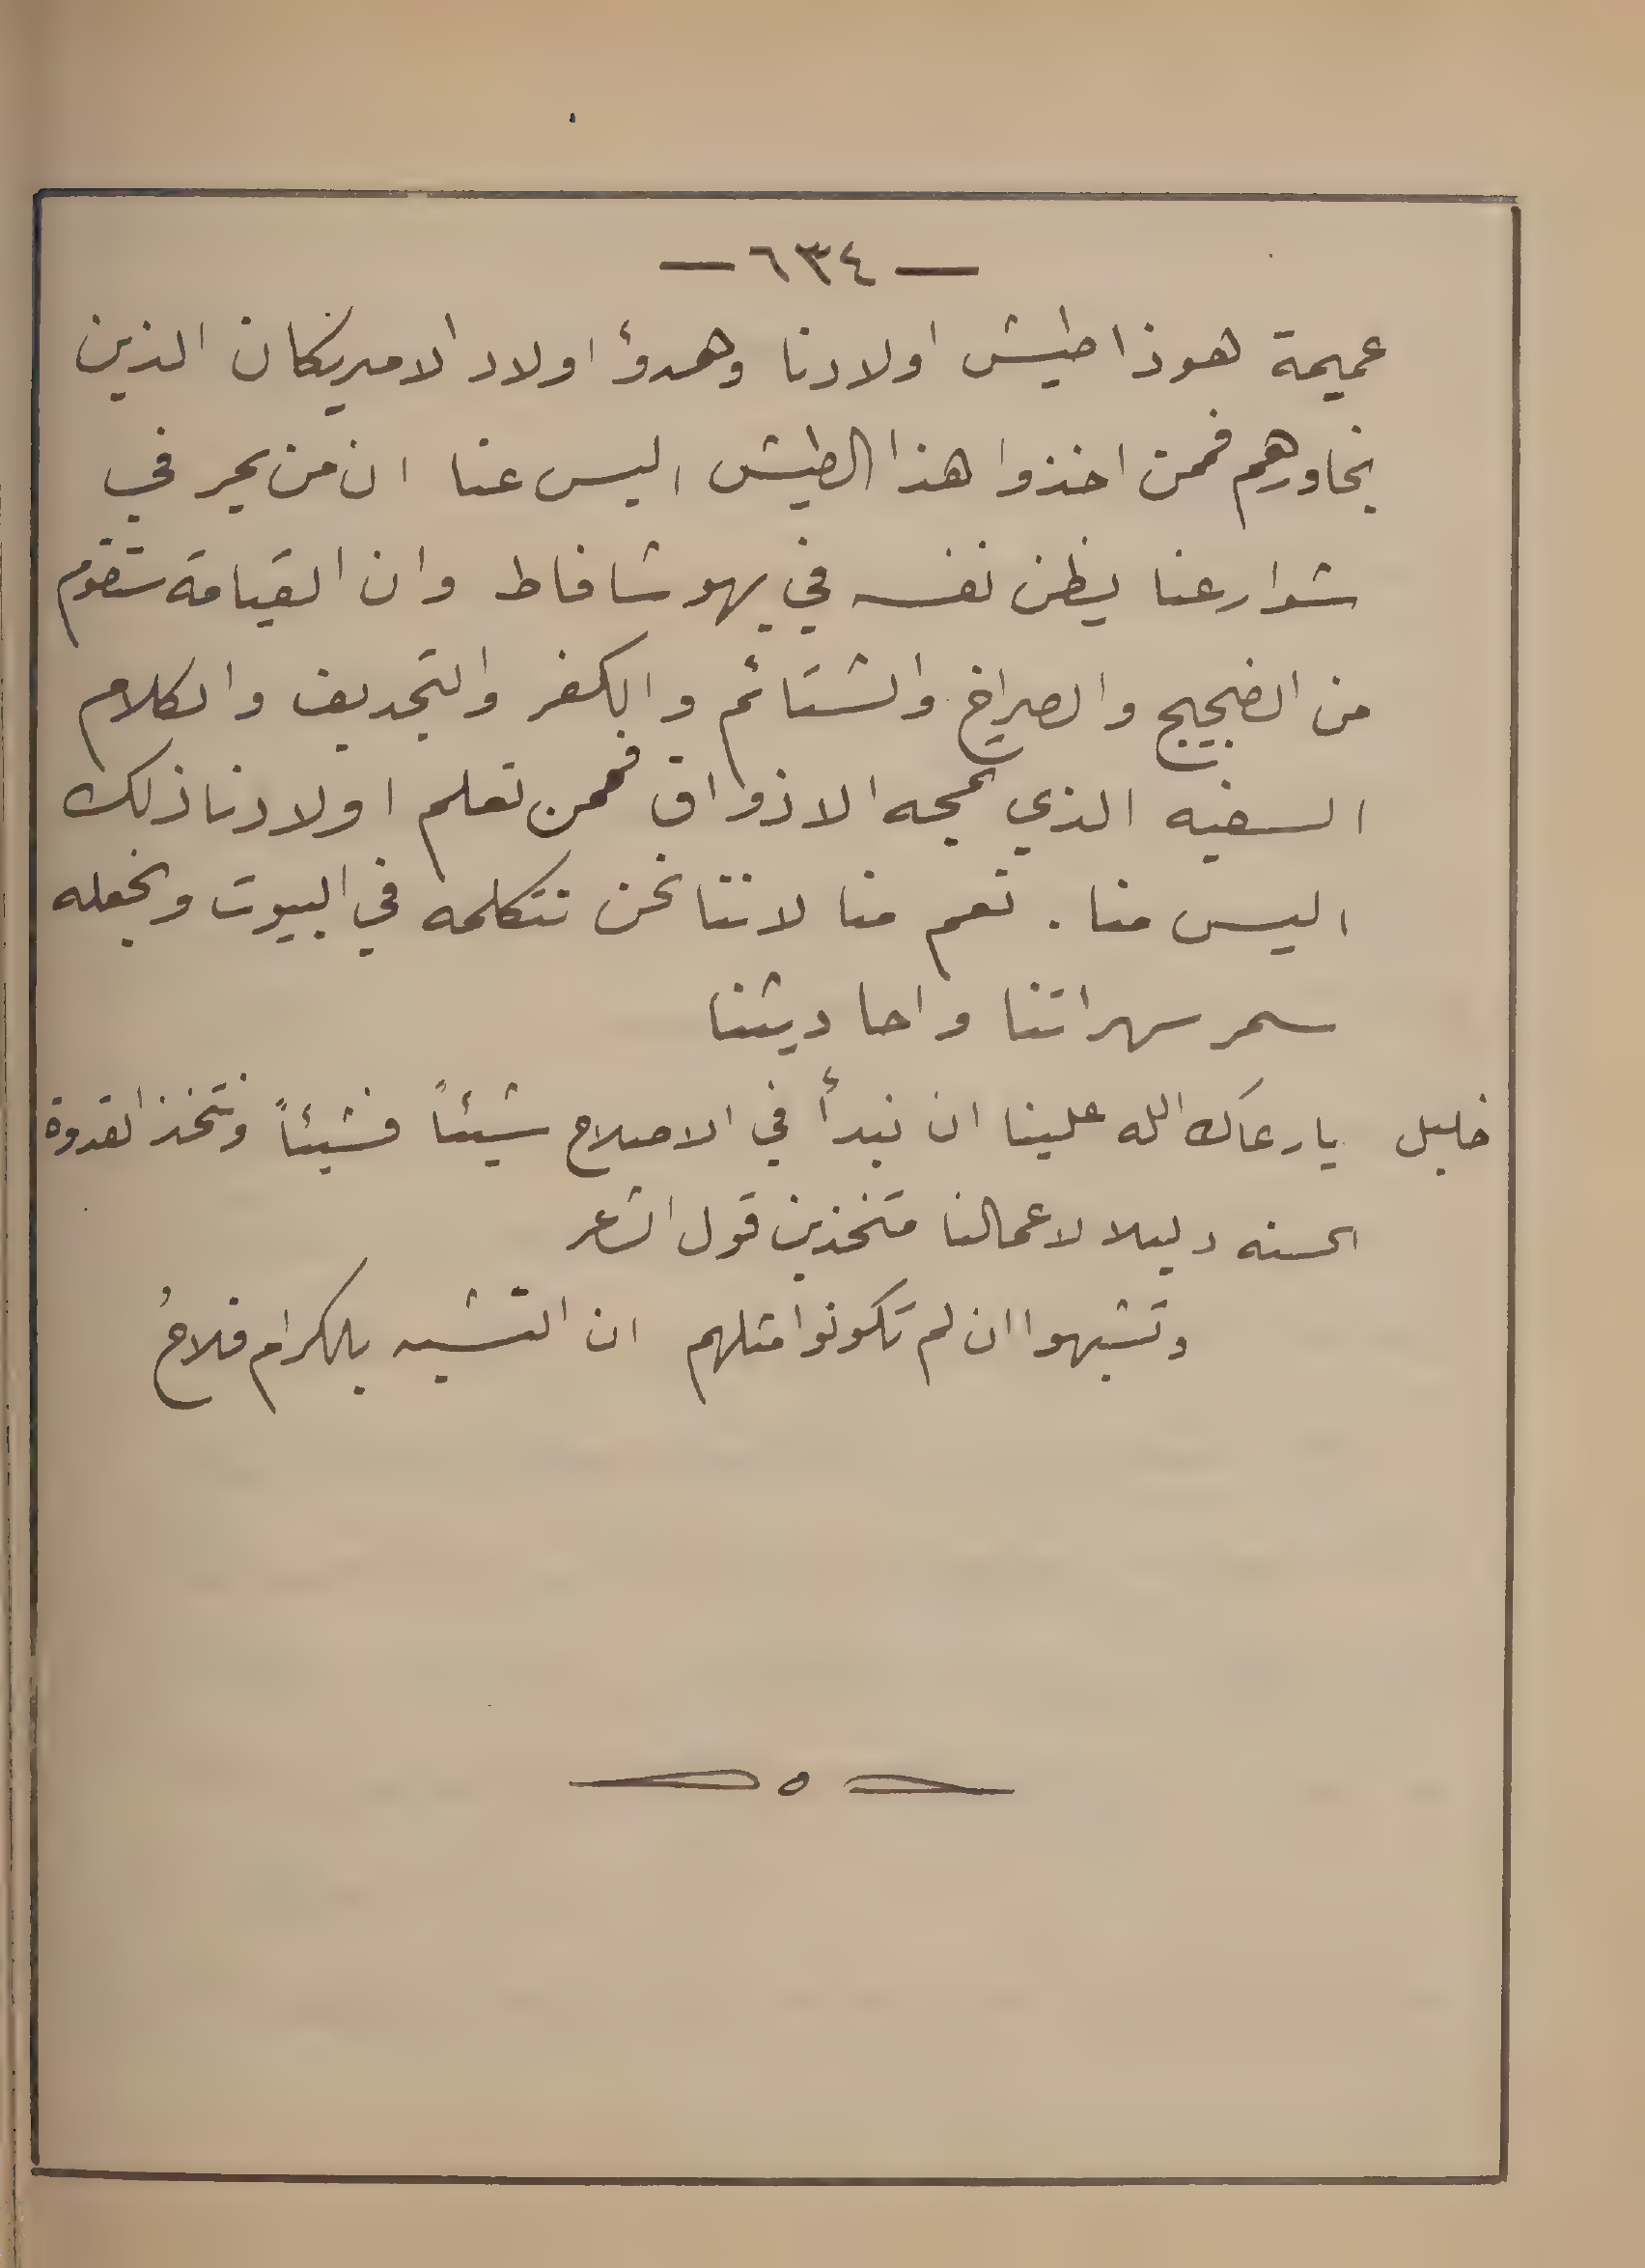 — ٦٣٤ —
عميمة هوذا طيش اولادنا وهدؤ اولاد الاميريكان الذين
نجاورهم فممن اخذوا هذا الطيش اليس عنا ان من يمر في
شوارعنا يظن نفسه في يهوشافاط وان القيامة ستقوم
من الضجيج والصراخ والشتائم والكفر والتجديف والكلام
السفيه الذي تمجه الاذواق فممن تعلم اولادنا ذلك
اليس منا . نعم منا لاننا نحن نتكلمه في البيوت ونجعله
سمر سهراتنا واحاديثنا
خليل يا رعاك الله علينا ان نبدأ في الاصلاح شيئاً فشيئاً ونتخذ القدوة
الحسنه دليلا لاعمالنا متخذين قول الشعر
وتشبهوا ان لم تكونوا مثلهم ان التشبه بالكرام فلاحُ